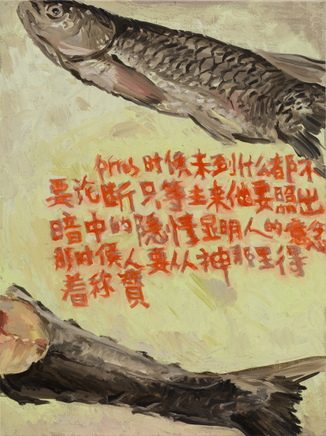 所以时候未到什么都不
要论断只等主来他要照出
暗中的隐情显明人的意念
那时候人要从神那里得
着称赞